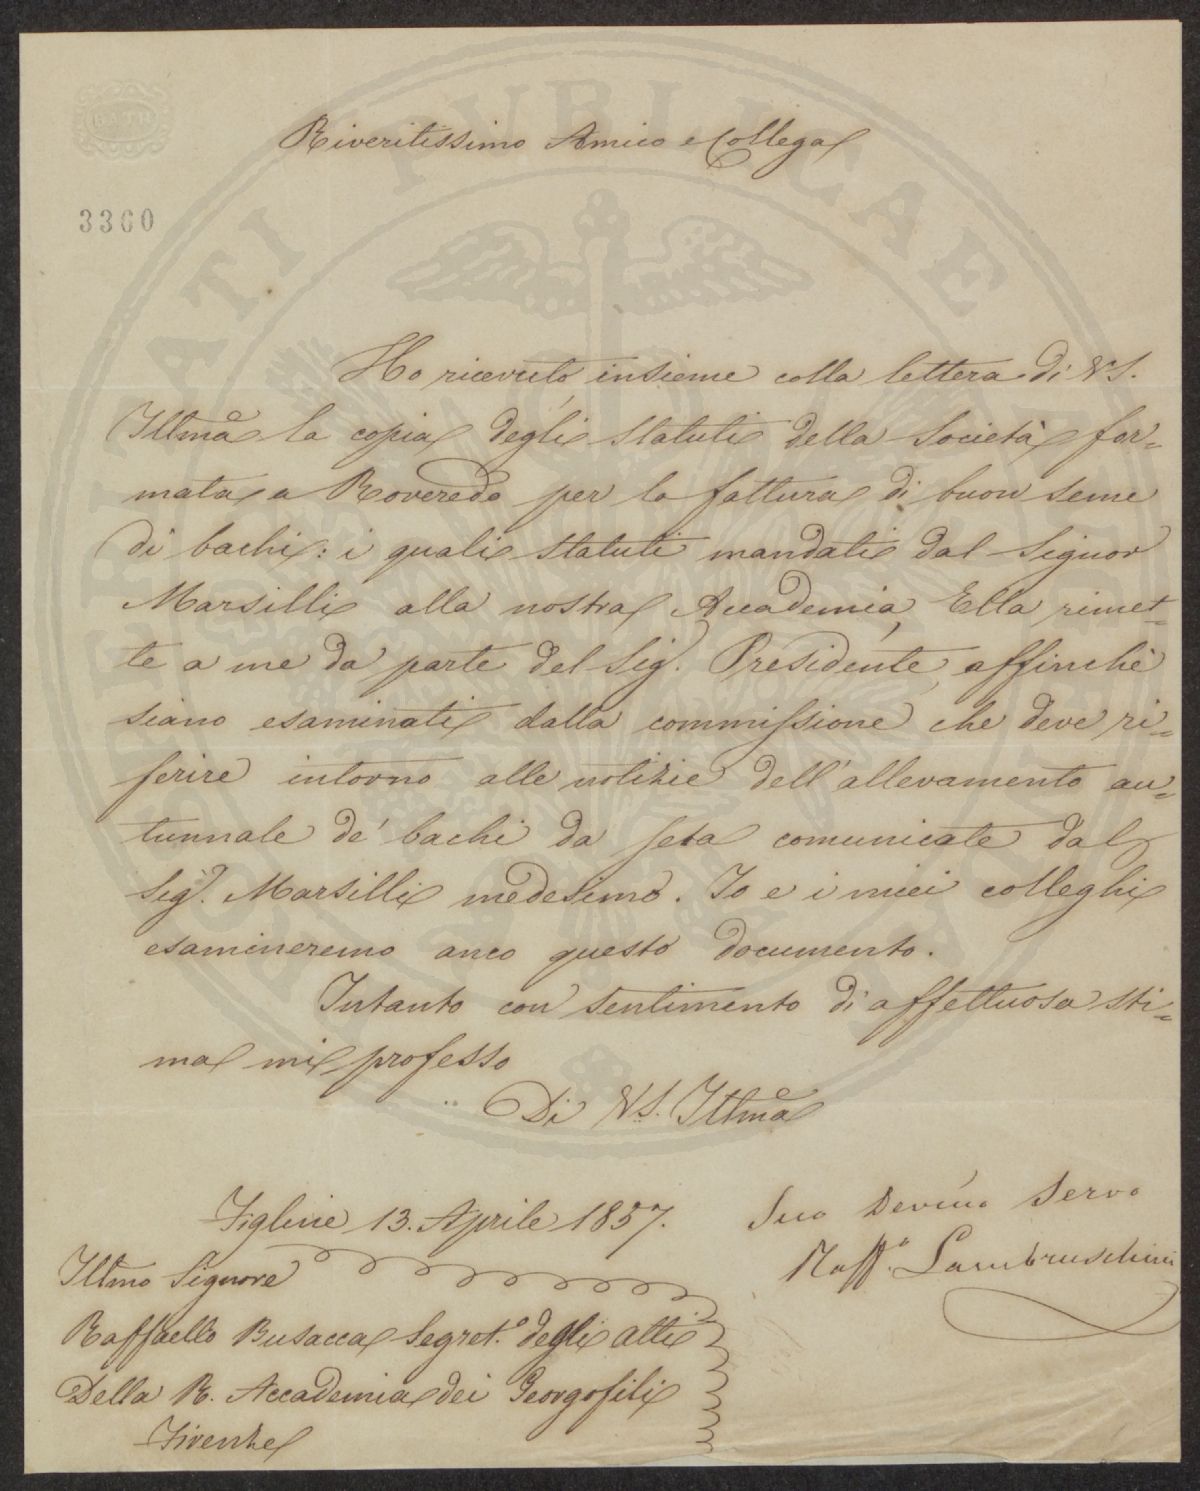 BATH
Riveritissimo Amico e Collega
3360
Ho ricevuto insieme colla lettera di V.S.
Illma la copia degli statuti della Società for=
mata a Roveredo per la fattura di buon seme
di bachi: i quali statuti mandati dal Signor
Marsilli alla nostra Accademia, Ella rimet=
te a me da parte del Sig. Presidente, affinchè
siano esaminati dalla commissione che deve ri=
ferire intorno alle notizie dell'allevamento au=
tunnale de' bachi da seta comunicate dal
Sig. Marsilli medesimo. Io e i miei colleghi
esamineremo anco questo documento.
Intanto con sentimento di affettuosa sti=
ma mi professo
Di V.S. Illma
Figline 13. Aprile 1857.
Suo Devmo Servo
Raffo. Lambruschini
Illmo Signore
Raffaello Busacca Segret.o degli atti
Della R. Accademia dei Georgofili
Firenze